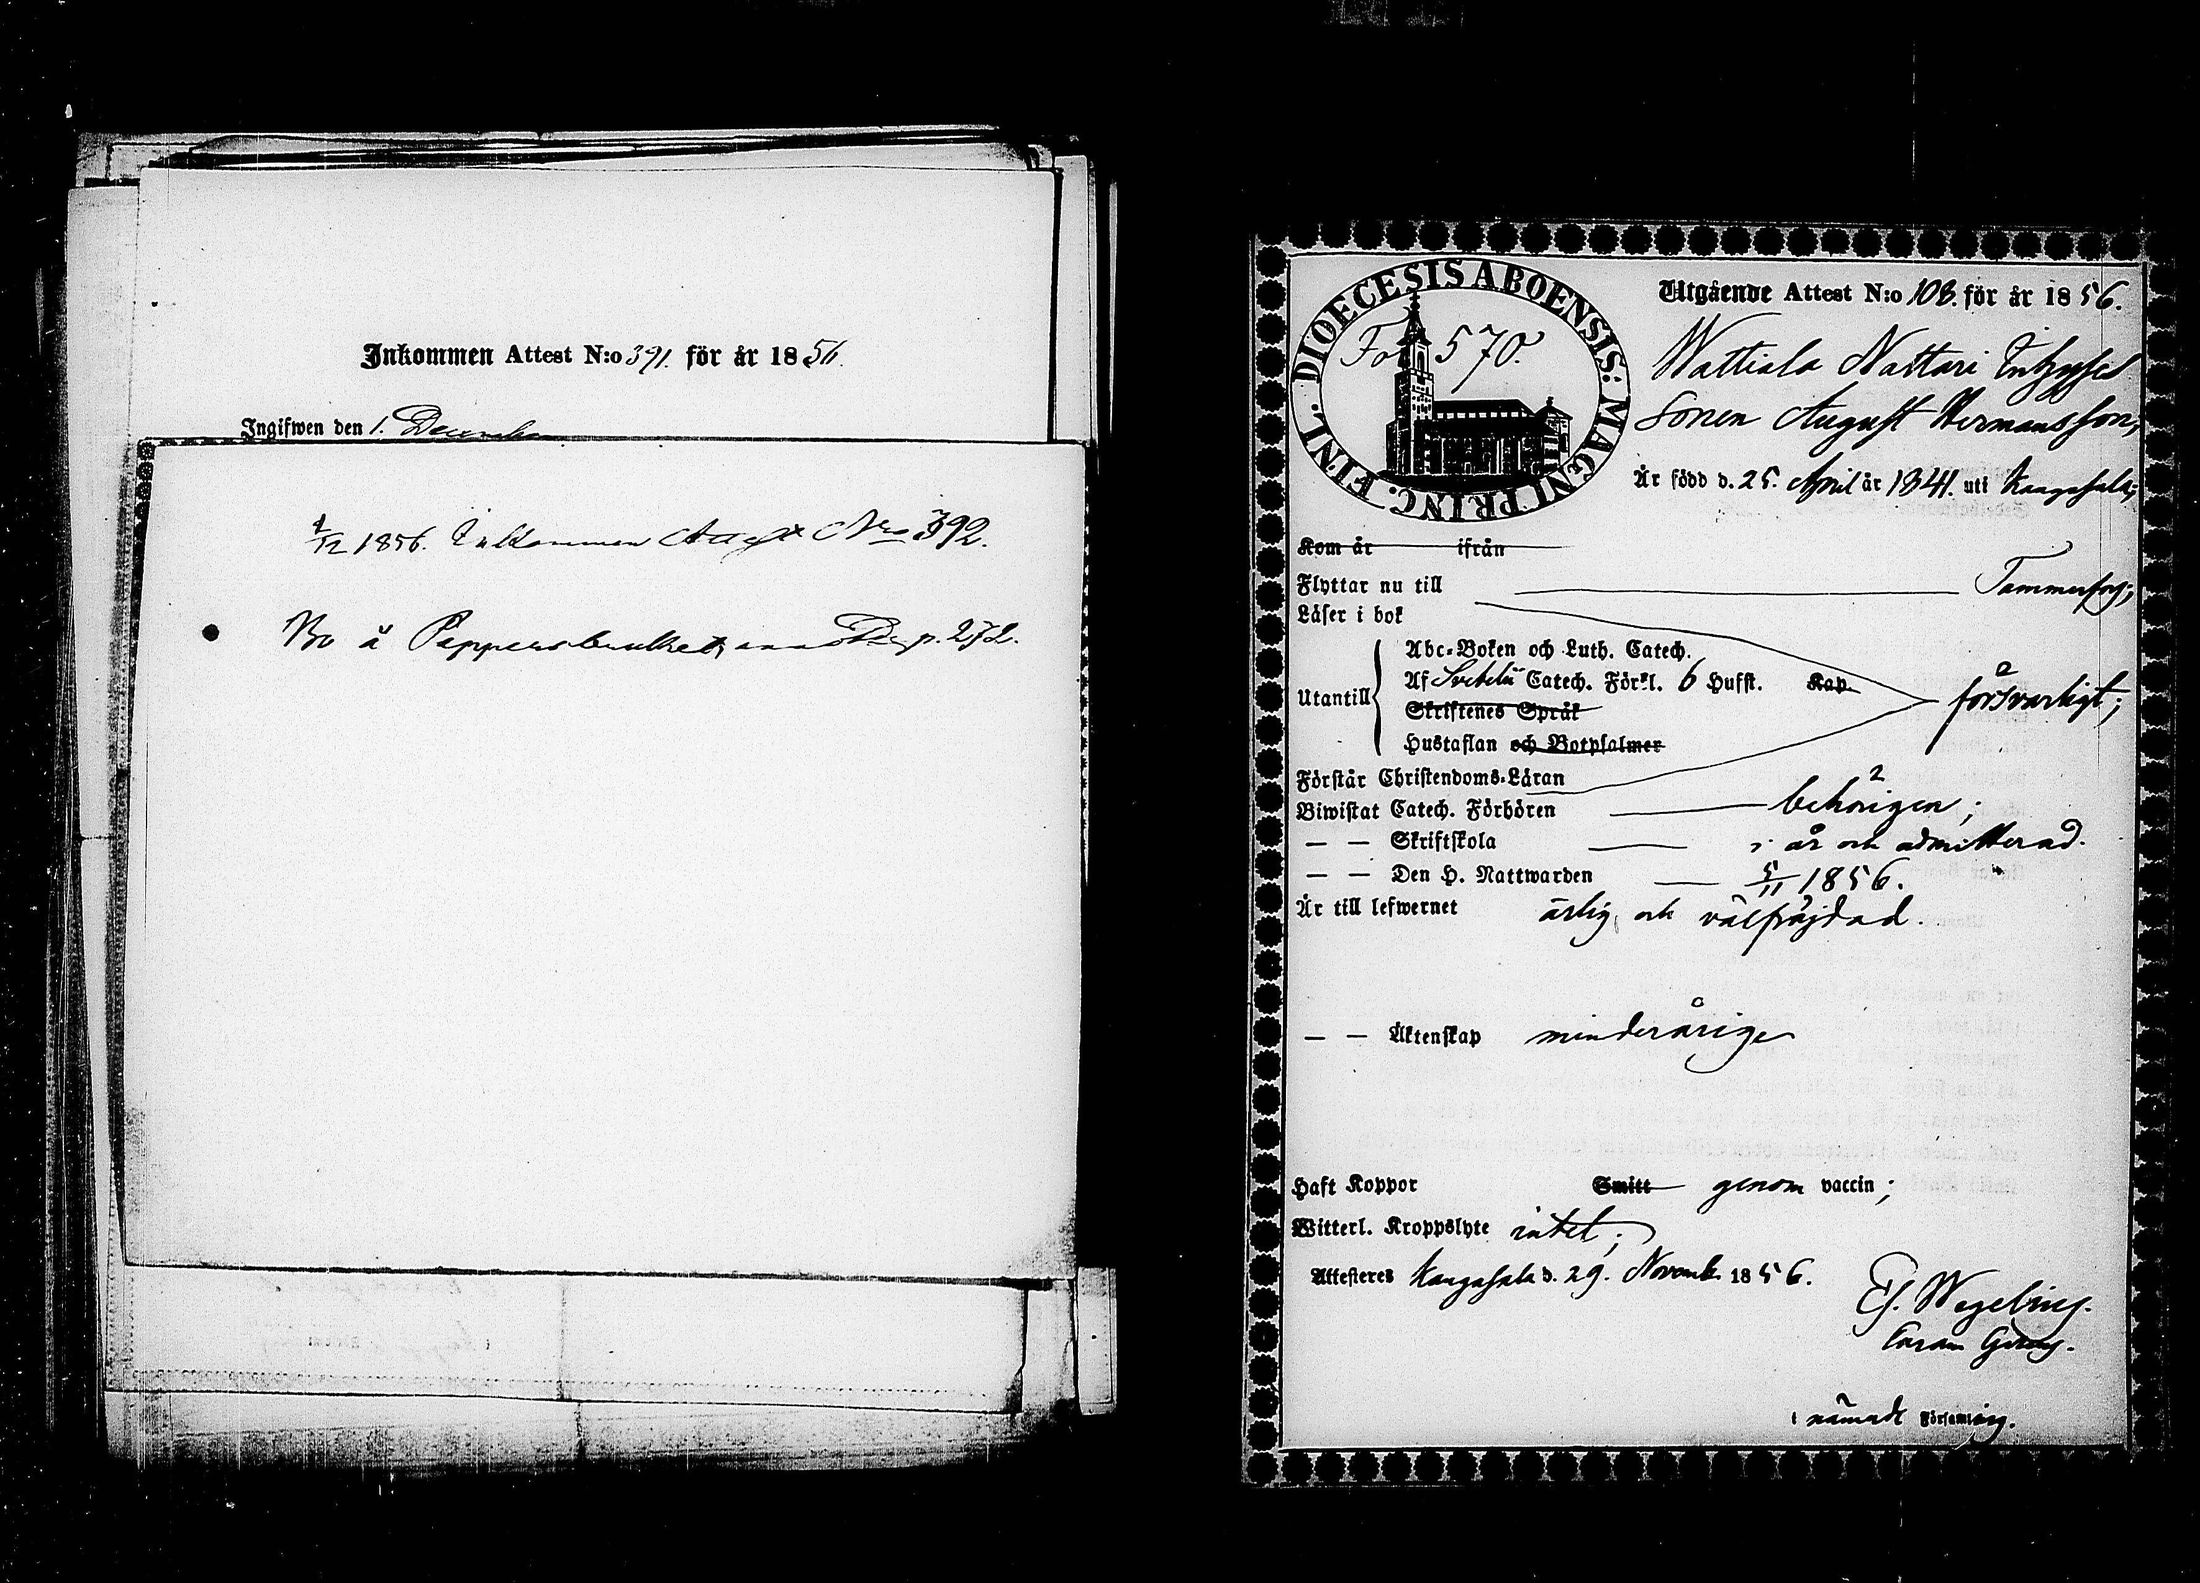 Inkommen Attest N:o 391. för år 1856.
Ingifwen den 1. December
1/12 1856. Inkommen Attest Nro 392.
Bo å Pappersbruket, p. 272.
DIOECESIS ABOENSIS: MAGNI PRINC. FINL.
Fol 570.
Utgående Attest N:o 108. för år 1856.
Wattiala Nattari Inhyses
Sonen August Hermansson,
Är född d. 25. April år 1841. uti Kangasala;
Kom år ifrån
Flyttar nu till Tammerfors;
Läser i bok
Utantill
Abc-Boken och Luth. Catech.
Af Svebelii Catech. Förkl. 6 Hufst. Kap.
Skriftenes Språk
försvarligt;
Hustaflan och Botpsalmer
Förstår Christendoms-Läran
Biwistat Catech. Förhören behörigen;
— — Skriftskola i år och admitterad.
— — Den H. Nattwarden 5/11 1856.
Är till lefwernet ärlig och välfräjdad.
— — Äktenskap minderårige
Haft Koppor Smitt genom vaccin;
Witterl. Kroppslyte intet;
Attesteras Kangasala d. 29. Novemb. 1856.
Ej. Wegelius.
i nämnde Församling.